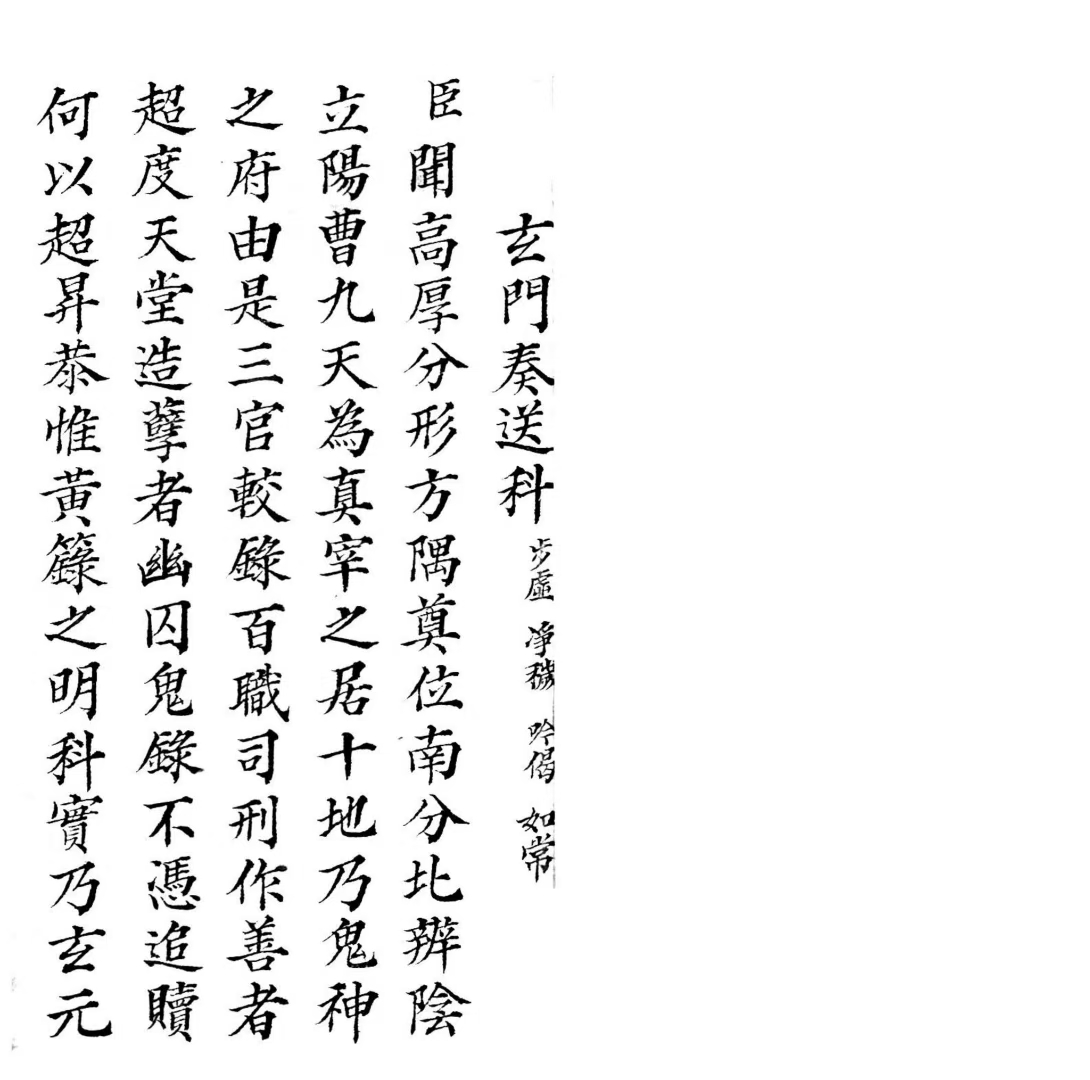 玄門奏送科 步虛 净穢 吟偈 如常
臣聞高厚分形方隅奠位南分比辨陰
立陽曹九天為真宰之居十地乃鬼神
之府由是三官較錄百職司刑作善者
超度天堂造孽者幽囚鬼錄不憑追贖
何以超昇恭惟黃籙之明科實乃玄元